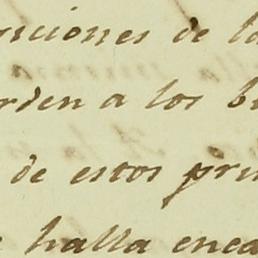 siciones de la
rden a los b
de estos pri
halla enca